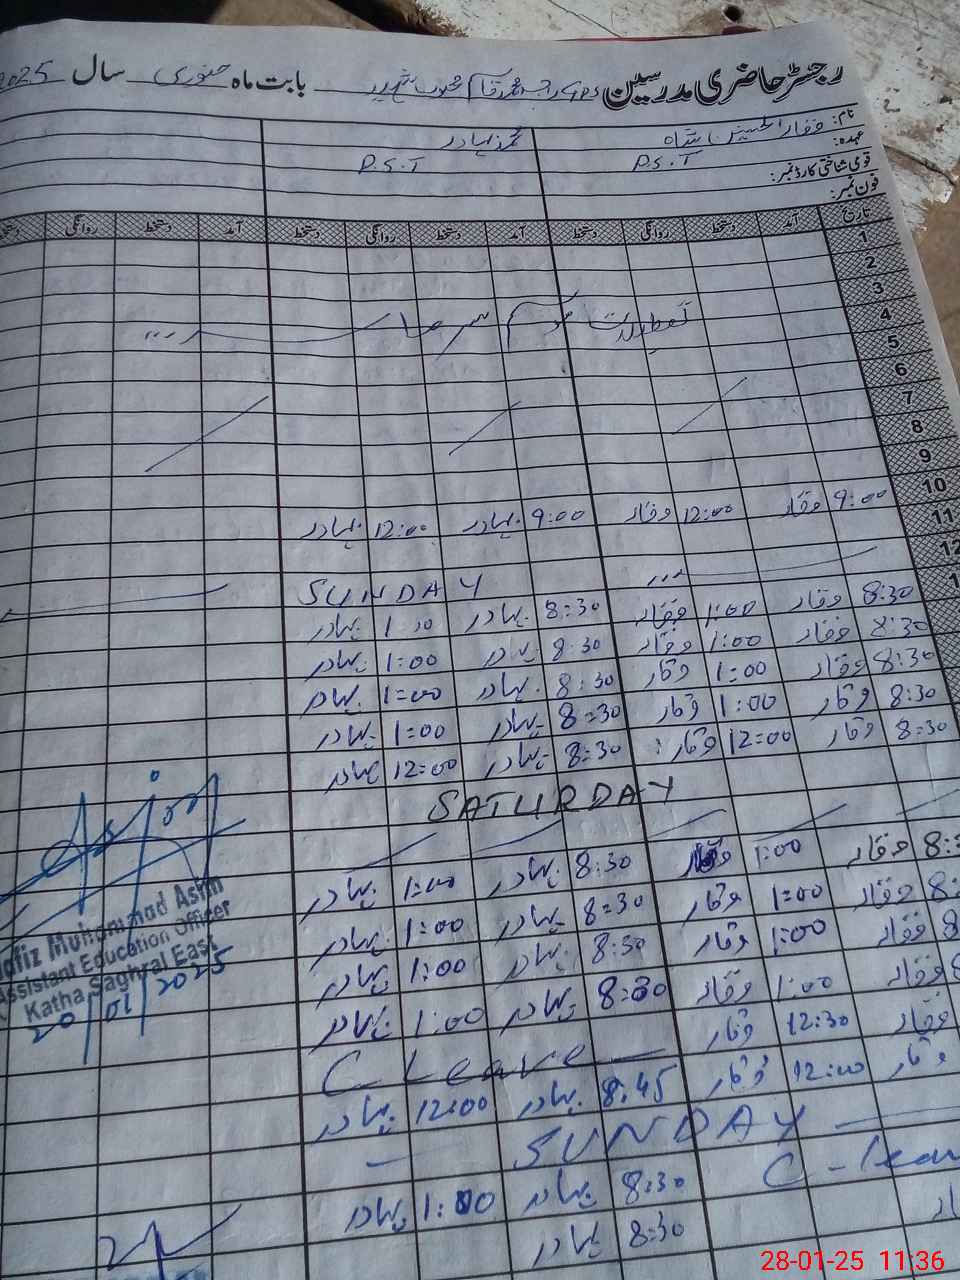 رجسٹر حاضری مدرسین GPS راجہ محمد قاسم محبوب شہید بابت ماہ جنوری سال 2025
نام: وقار الحسنین شاہ محمد بہادر
عہدہ: P.S.T P.S.T
قومی شناختی کارڈ نمبر:
فون نمبر:
تاریخ آمد دستخط روانگی دستخط آمد دستخط روانگی دستخط آمد دستخط روانگی دستخط
1
2
3
4
تعطیلات موسم سرما
5
6
7
8
9
10
11 9:00 وقار 12:00 وقار 9:00 بہادر 12:00 بہادر
12
SUNDAY
8:30 وقار 1:00 وقار 8:30 بہادر 1:00 بہادر
8:30 وقار 1:00 وقار 8:30 بہادر 1:00 بہادر
8:30 وقار 1:00 وقار 8:30 بہادر 1:00 بہادر
8:30 وقار 1:00 وقار 8:30 بہادر 1:00 بہادر
8:30 وقار 12:00 وقار 8:30 بہادر 12:00 بہادر
SATURDAY
8:3 وقار 1:00 وقار 8:30 بہادر 1:00 بہادر
8: وقار 1:00 وقار 8:30 بہادر 1:00 بہادر
8 وقار 1:00 وقار 8:30 بہادر 1:00 بہادر
8 وقار 1:00 وقار 8:30 بہادر 1:00 بہادر
وقار 12:30 وقار C Leave
وقار 12:00 وقار 8:45 بہادر 12:00 بہادر
SUNDAY
C-leav 8:30 بہادر 1:00 بہادر
8:30 بہادر
Hafiz Muhammad Asim
Assistant Education Officer
Katha Saghral East
20/01/2025
28-01-25 11:36